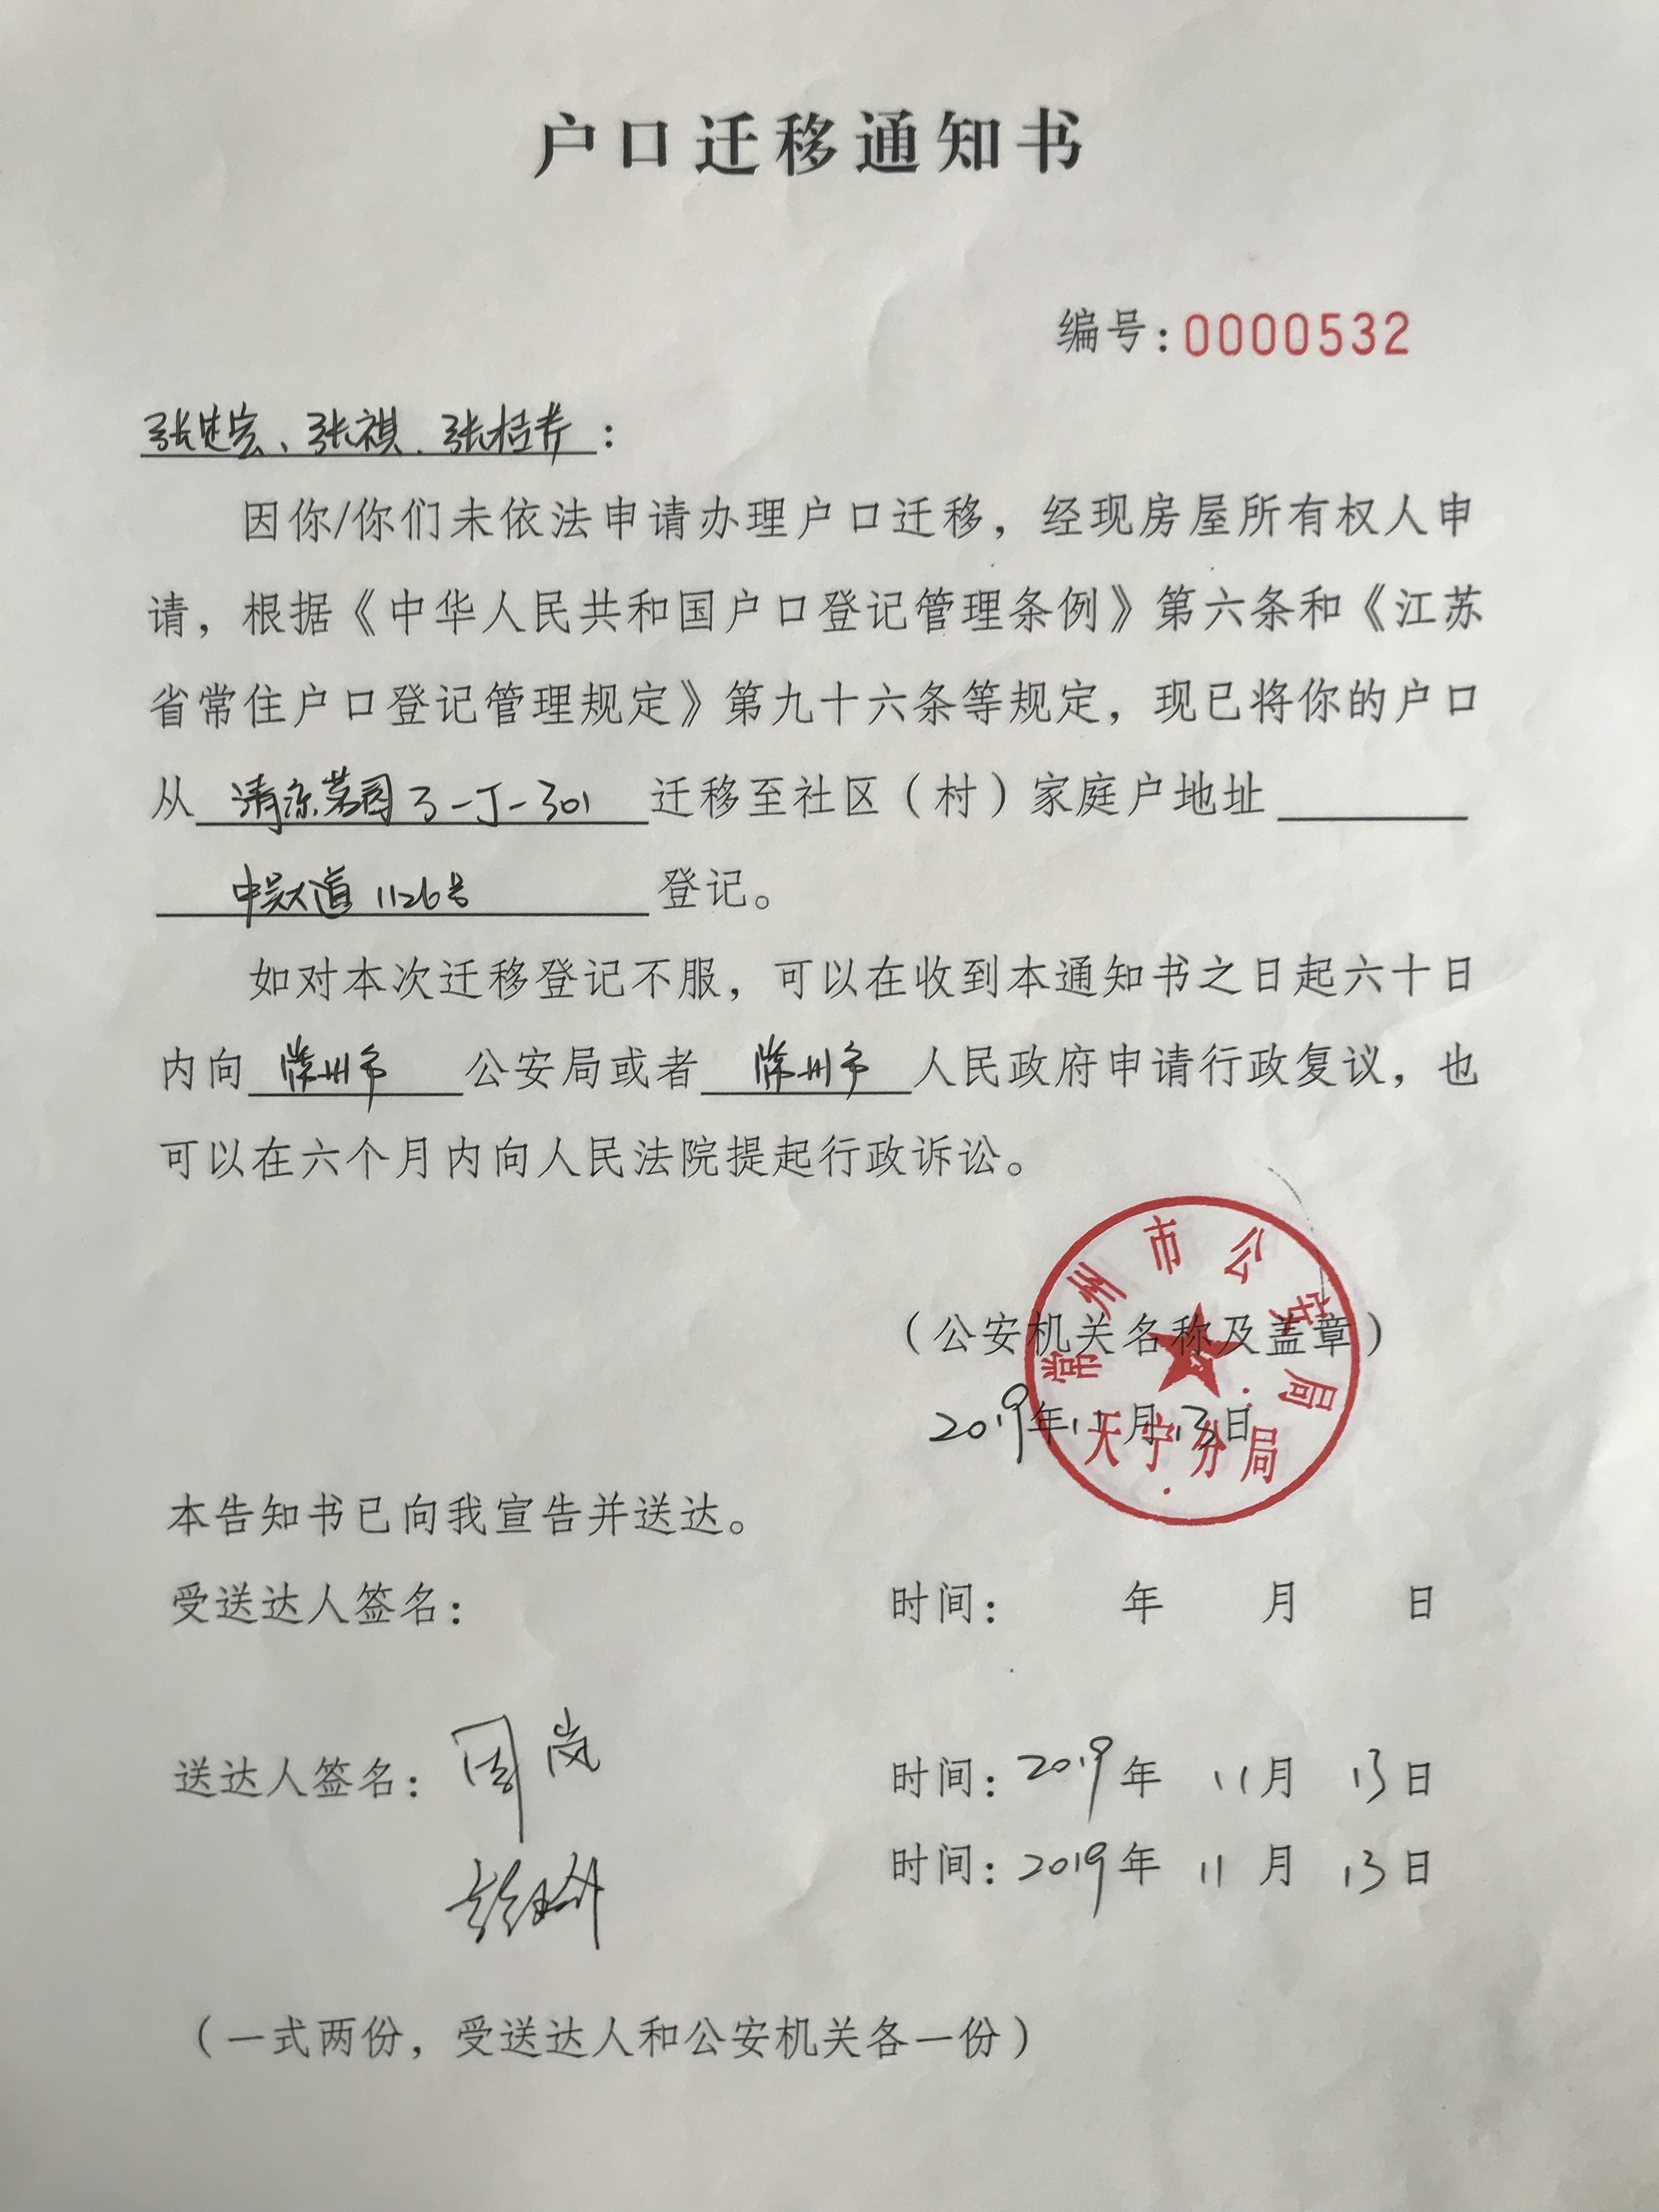 户口迁移通知书
编号:0000532
张建宏、张祺、张桂芳:
因你/你们未依法申请办理户口迁移，经现房屋所有权人申
请，根据《中华人民共和国户口登记管理条例》第六条和《江苏
省常住户口登记管理规定》第九十六条等规定，现已将你的户口
从 清凉花园3-J-301 迁移至社区（村）家庭户地址
中吴大道1126号 登记。
如对本次迁移登记不服，可以在收到本通知书之日起六十日
内向 常州市 公安局或者 常州市 人民政府申请行政复议，也
可以在六个月内向人民法院提起行政诉讼。
常州市公安局
（公安机关名称及盖章）
2019年11月13日
天宁分局
本告知书已向我宣告并送达。
受送达人签名: 时间: 年 月 日
送达人签名: 周岚 时间: 2019年 11月 13日
时间: 2019年 11月 13日
（一式两份，受送达人和公安机关各一份）